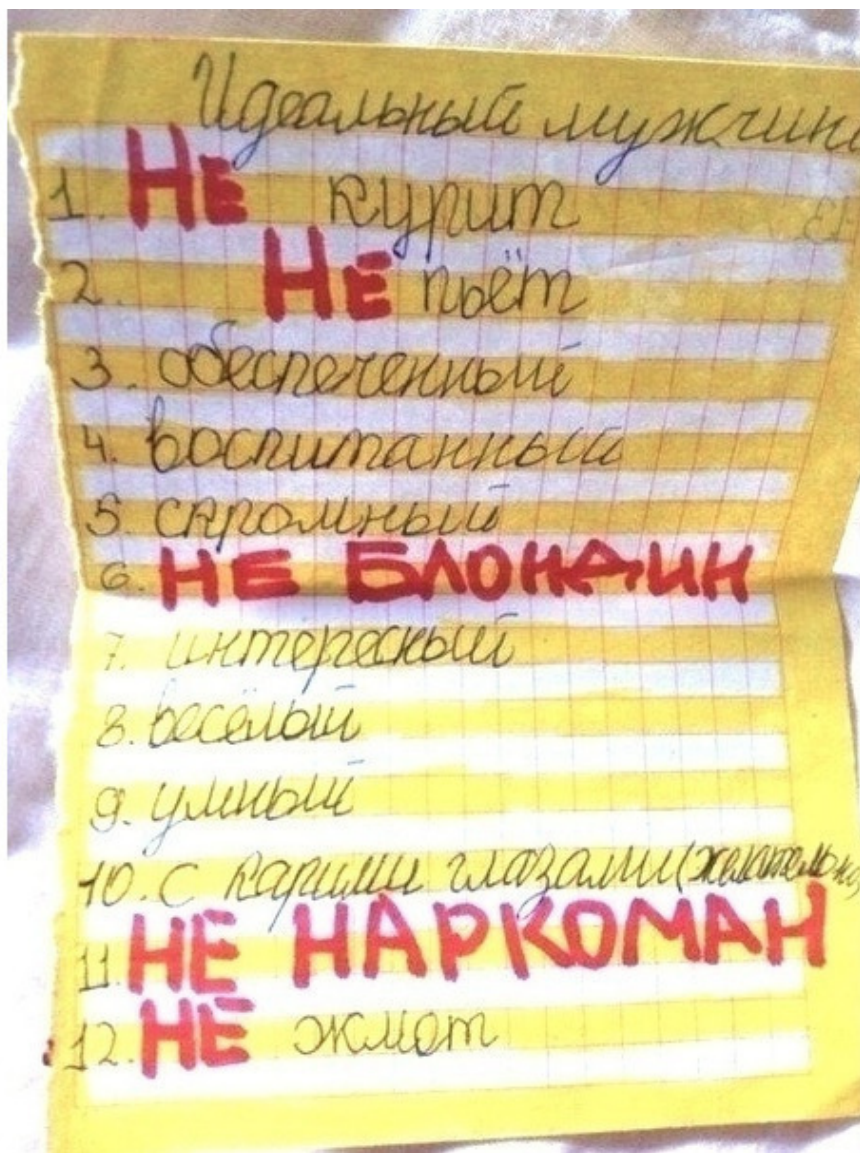 Идеальный мужчина
1. НЕ курит
2. НЕ пьёт
3. обеспеченный
4. воспитанный
5. скромный
6. НЕ БЛОНДИН
7. интересный
8. весёлый
9. умный
10. с карими глазами (желательно)
11. НЕ НАРКОМАН
12. НЕ жмот